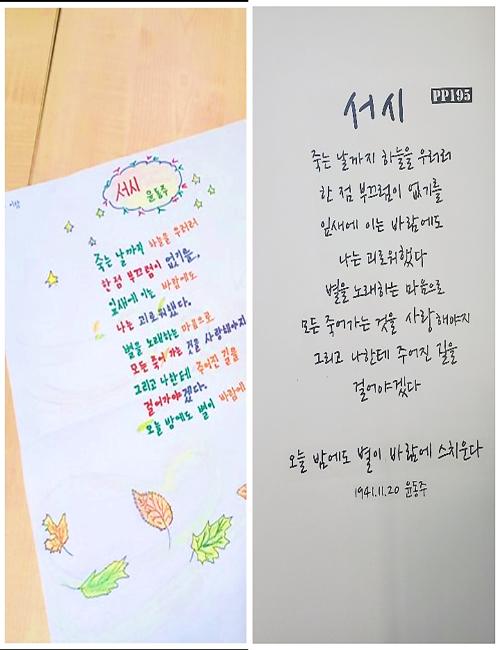 서시 윤동주
죽는 날까지 하늘을 우러러
한 점 부끄럼이 없기를,
잎새에 이는 바람에도
나는 괴로워했다.
별을 노래하는 마음으로
모든 죽어 가는 것을 사랑해야지
그리고 나한테 주어진 길을
걸어가야겠다.
오늘 밤에도 별이 바람에
서시 PP195
죽는 날까지 하늘을 우러러
한 점 부끄럼이 없기를
잎새에 이는 바람에도
나는 괴로워했다
별을 노래하는 마음으로
모든 죽어가는 것을 사랑해야지
그리고 나한테 주어진 길을
걸어야겠다
오늘 밤에도 별이 바람에 스치운다
1941.11.20 윤동주